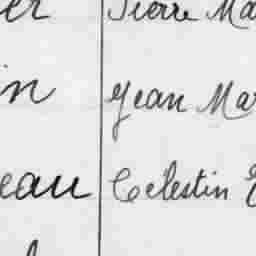 er Pierre Ma
in Jean Mar
eau Celestin E